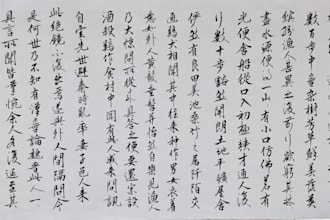 數百步中無雜樹芳草鮮美落英
繽紛漁人甚異之復前行欲窮其林
盡水源便得一山山有小口彷彿若有
光便舍船從口入初極狹才通人復
行數十步豁然開朗土地平曠屋舍
儼然有良田美池桑竹之屬阡陌交
通雞犬相聞其中往來種作男女衣著
悉如外人黃髮垂髫并怡然自樂見漁人
乃大驚問所從來具答之便要還家設
酒殺雞作食村中聞有此人咸來問訊
自云先世避秦時亂率妻子邑人來
此絕境不復出焉遂與外人間隔問今
是何世乃不知有漢無論魏晉此人一
具言所聞皆歎惋餘人各復延至其